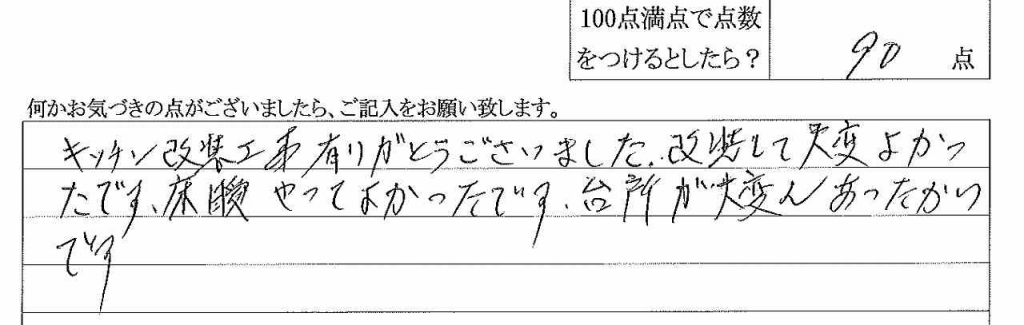 100点満点で点数
をつけるとしたら？
90 点
何かお気づきの点がございましたら、ご記入をお願い致します。
キッチン改装工事有りがとうございました。改装して大変よかっ
たです、床暖やってよかったです。台所が大変んあったかい
です